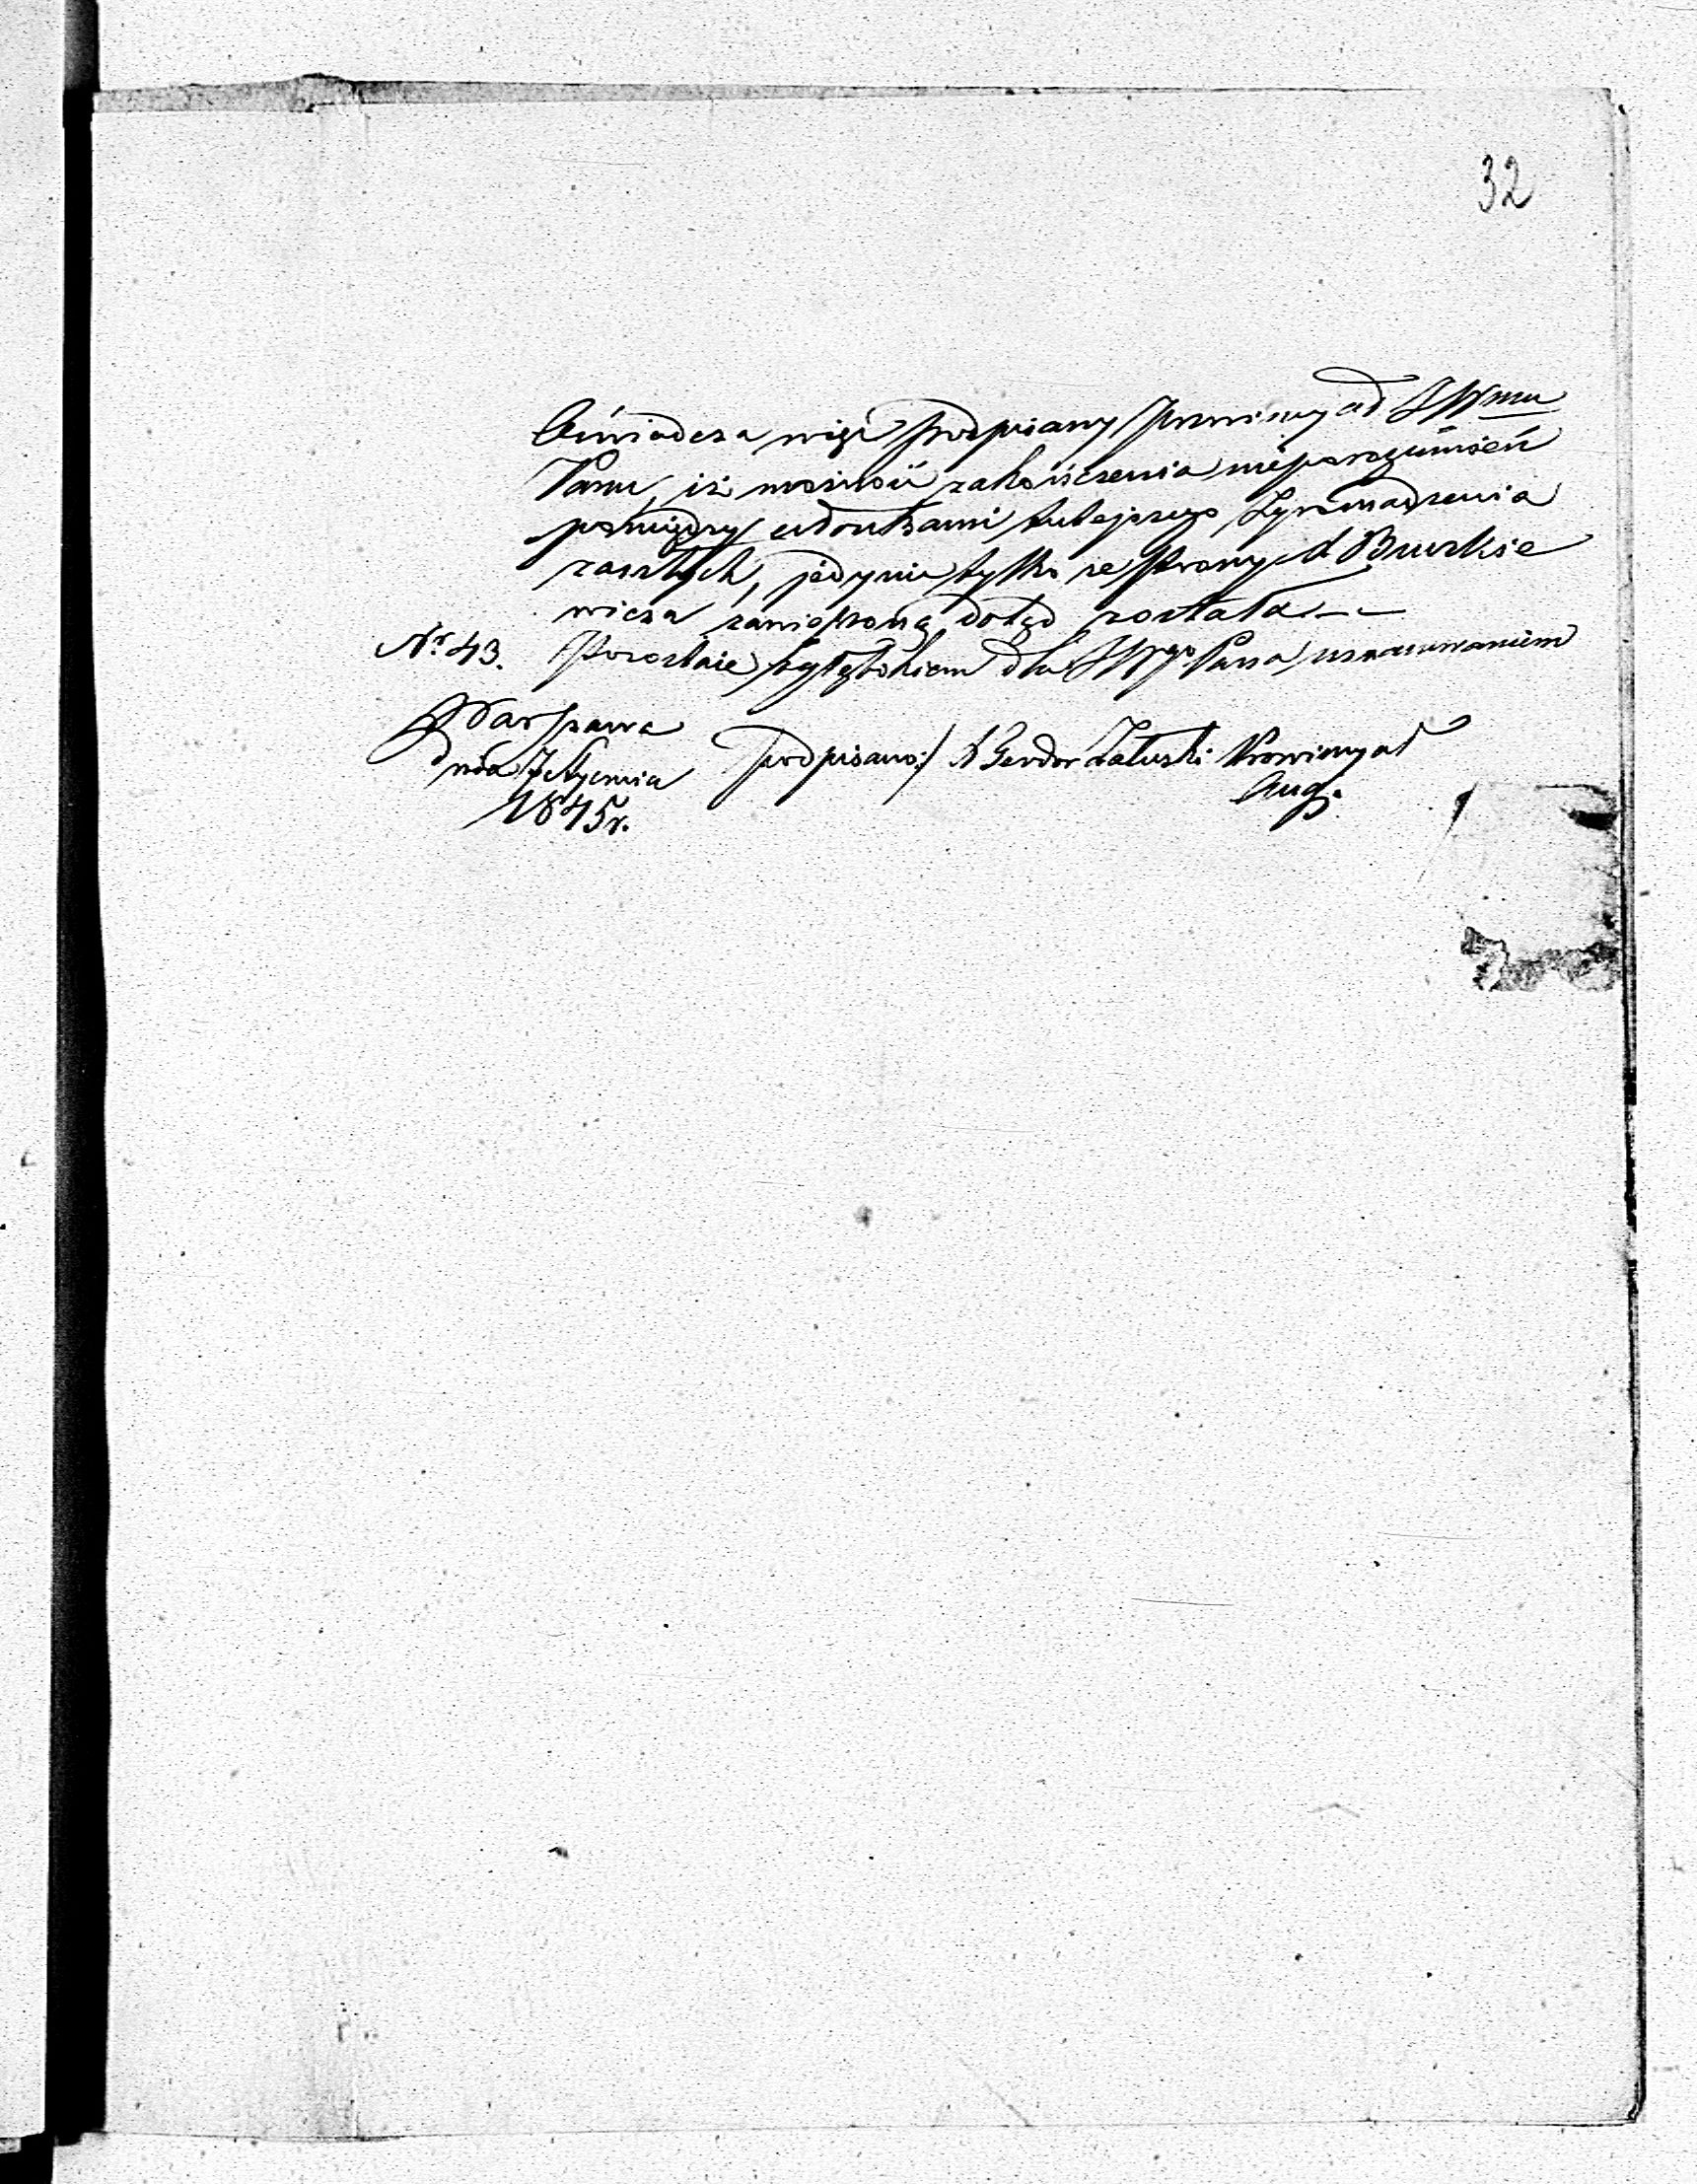 32
Oświadcza więc podpisany Prowincyał JWmu
Panu, iż możność zakończenia nieporozumień
pomiędzy członkami tutejszego Zgromadzenia
zaszłych, jedynie tylko ze strony X Burkie
wicza zawieszoną dotąd została
Nr 43. Pozostaie z głębokiem dla JWgo Pana uszanowaniem
Warszawa
dnia 7 Stycznia
1845 r.
podpisano:/ X Teodor Załuski Prowincyał
Aug: